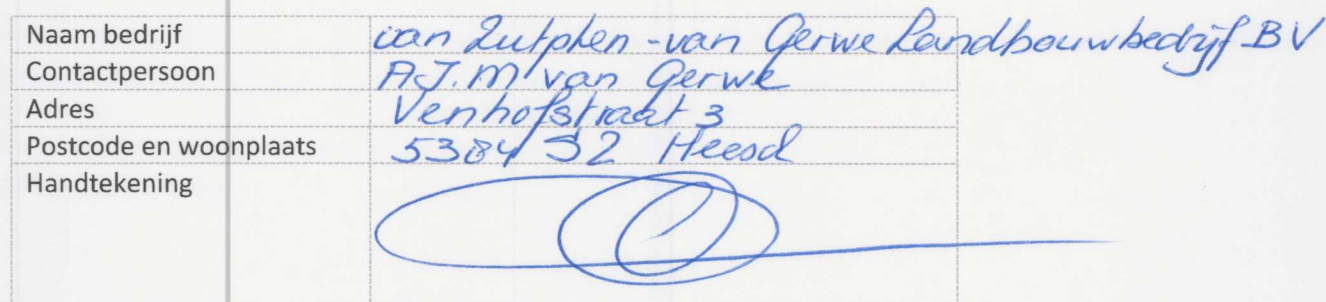 Naam bedrijf van Zutphen - van Gerwe Landbouwbedrijf BV
Contactpersoon A.J.M van Gerwe
Adres Venhofstraat 3
Postcode en woonplaats 5384 SZ Heesch
Handtekening